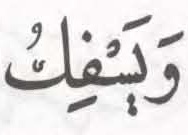 وَيَسْفِكُ